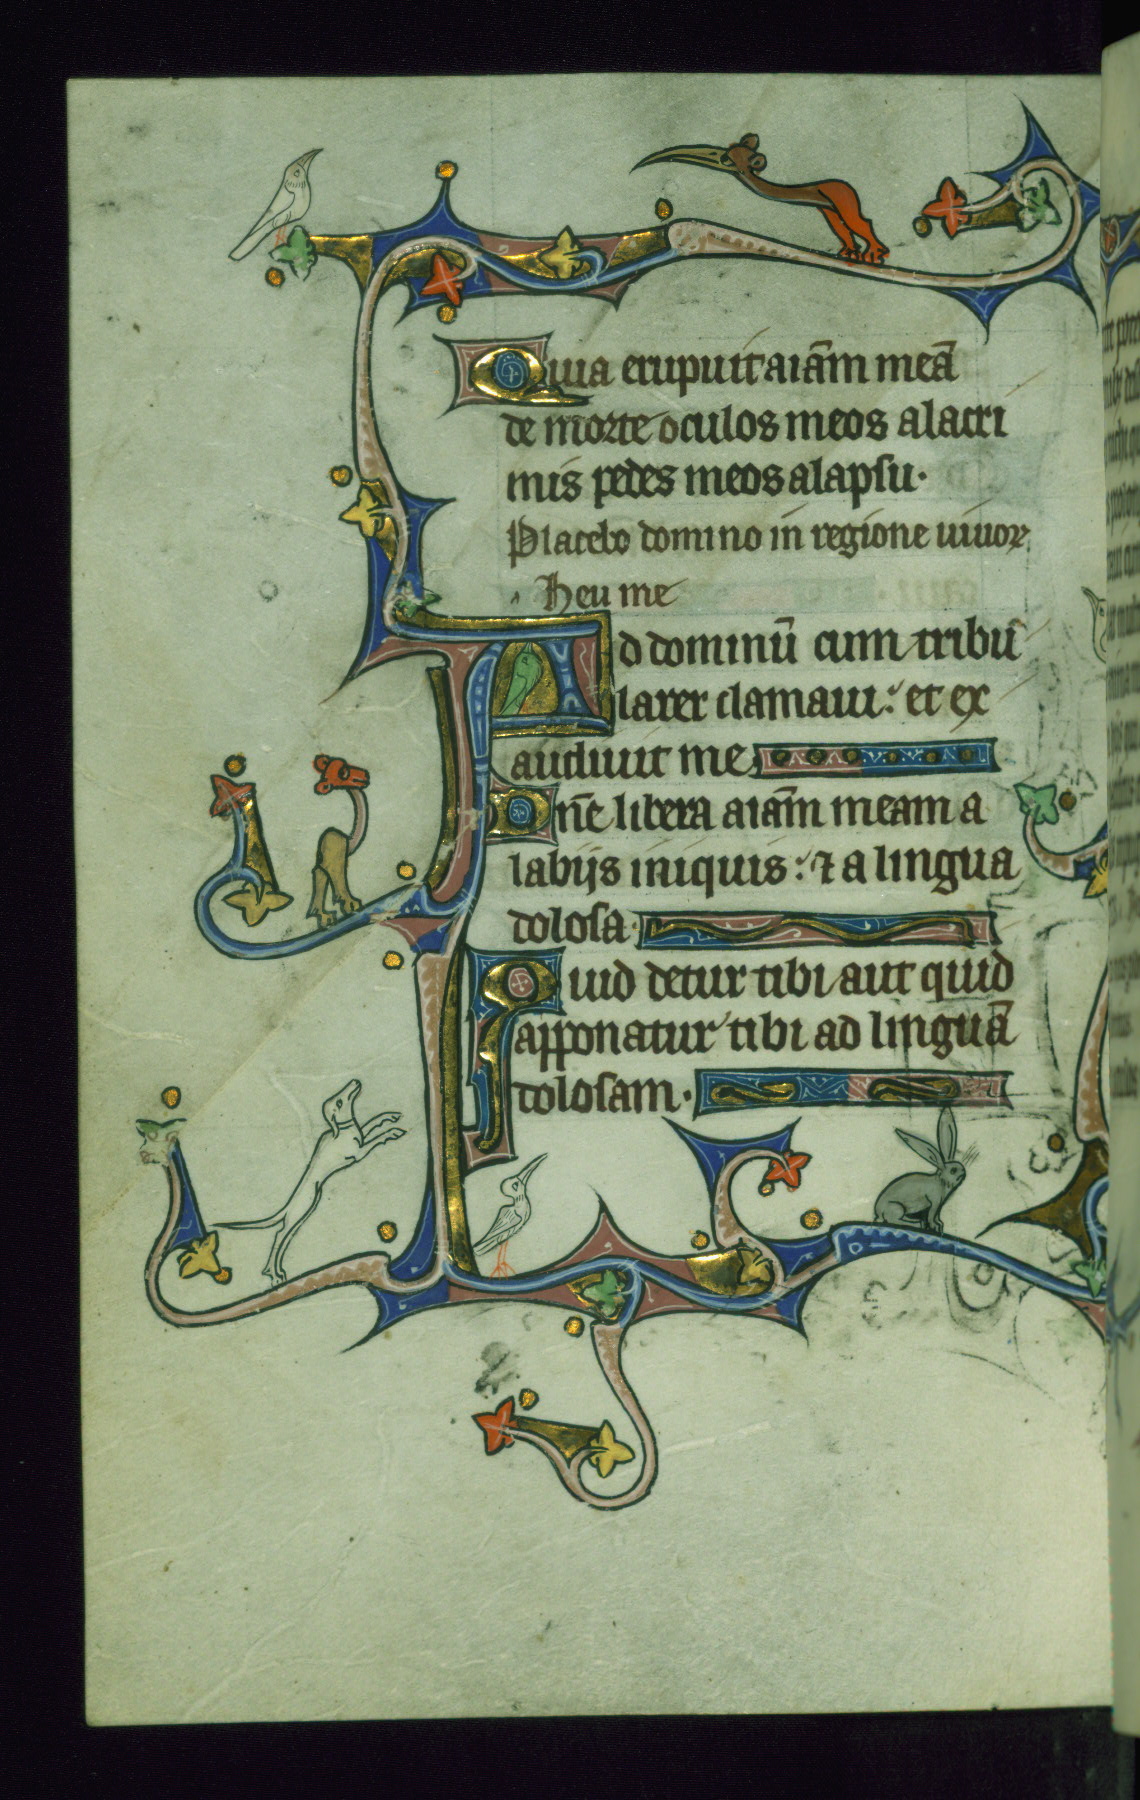 Quia erupuit aīam meā
de morte oculos meos a lacri
mis pedes meos a lapsu.
Placebo domino in regione uiuoꝝ
Heu me
Ad dominū cum tribu
larer clamaui: et ex
audiuit me
Dn̄e libera aīam meam a
labijs iniquis: ⁊ a lingua
dolosa
Quid detur tibi aut quid
apponatur tibi ad linguā
dolosam.